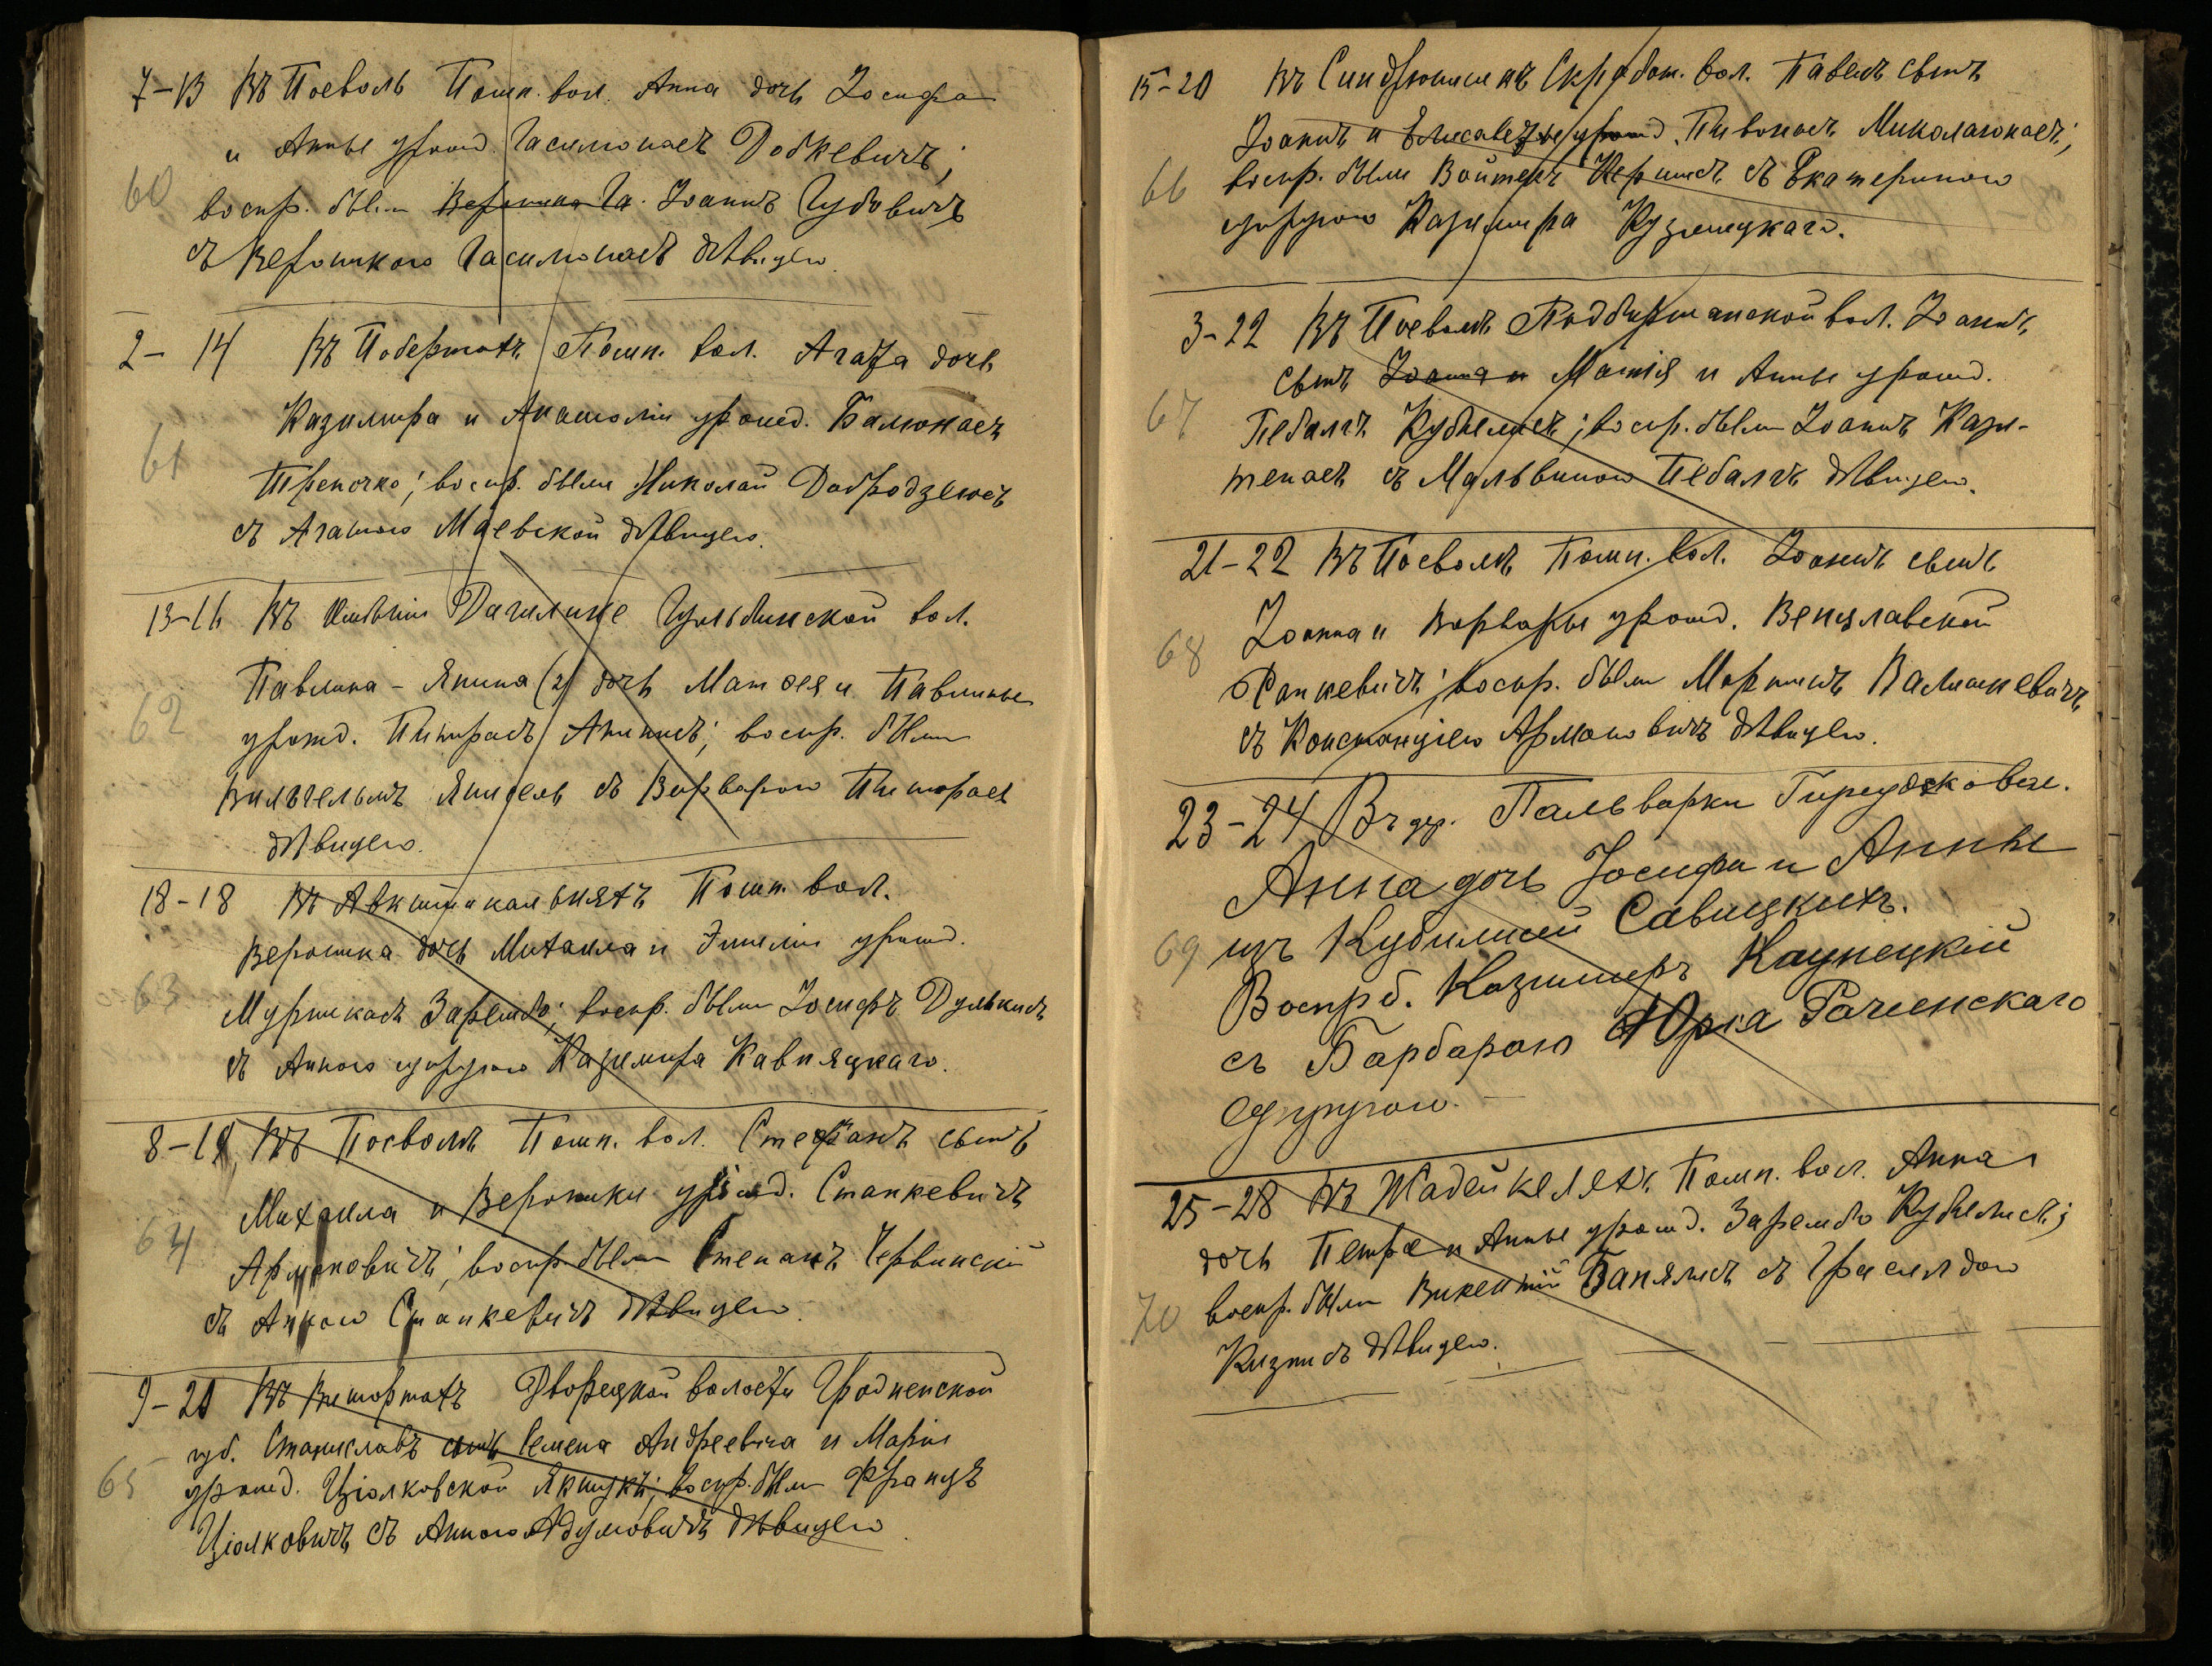 7–13 Въ Поеволь Пошп. вол. Анна дочь Іосифа
и Анны урожд. Гасилюнасъ Доткевичъ;
60
воспр. были Вероника Га. Іоаннъ Гудовичъ
съ Вероникою Гасилюнасъ дѣвицею.
2– 14 Въ Побержахъ Пошп. вол. Агаѳа дочь
Казимира и Анатоліи урожд. Балюнасъ
61
Треночко; воспр. были Николай Добродзеюсъ
съ Агатою Маевской дѣвицею.
13–16 Въ имѣніи Дагилине Гульбинской вол.
Павлина – Янина (2) дочь Матѳея и Павлины
62
урожд. Питрасъ Анинисъ; воспр. были
Вильгельмъ Янисель съ Варварою Питрасъ
дѣвицею.
18–18 Въ Авкштикальняхъ Пошп. вол.
Вероника дочь Михаила и Эмиліи урожд.
63
Мурникасъ Зарембо; воспр. были Іосифъ Дулькисъ
съ Анною супругою Казимира Кавняцкаго.
8–19 Въ Посволѣ Пошп. вол. Стефанъ сынъ
Михаила и Вероники урожд. Станкевичъ
64
Армановичъ; воспр. были Степанъ Червинскій
съ Анною Станкевичъ дѣвицею.
9–20 Въ Дворецкой волости Гродненской
губ. Станиславъ сынъ Семена Андреевича и Маріи
65
урожд. Ціолковской Якицкъ; воспр. были Францъ
Ціолковичъ съ Анною Адумовичъ дѣвицею.
15–20 Въ Синдрюнишкахъ Скробот. вол. Павелъ сынъ
Іоанна и Елисаветы урожд. Пивонасъ Миколаюнасъ;
66
воспр. были Войтехъ Нернисъ съ Екатериною
супругою Казимира Кузмицкаго.
3–22 Въ Посволѣ Подбиржанской вол. Іоаннъ
сынъ Іоанна и Матія и Анны урожд.
67
Пебалгъ Кубилисъ; воспр. были Іоаннъ Кази-
тенасъ съ Мальвиною Пебалгъ дѣвицею.
21–22 Въ Посволѣ Пошп. вол. Іоаннъ сынъ
Іоанна и Варвары урожд. Венцлавской
68
Ранкевичъ; воспр. были Мартинъ Валишкевичъ
съ Констанціею Армановичъ дѣвицею.
23–24 Въ др. Пальварки Гиреудско вол.
Анна дочь Іосифа и Анны
69 изъ Кубилисей Савицкихъ.
Воспр б. Казимеръ Каунецкій
съ Барбарою Юрія Рачинскаго
супругою.
25–28 Въ Жадейкеляхъ Пошп. вол. Анна
дочь Петра и Анны урожд. Зарембо Кубилисъ;
70
воспр. были Викентій Банялисъ съ Гризелдою
Кизписъ дѣвицею.